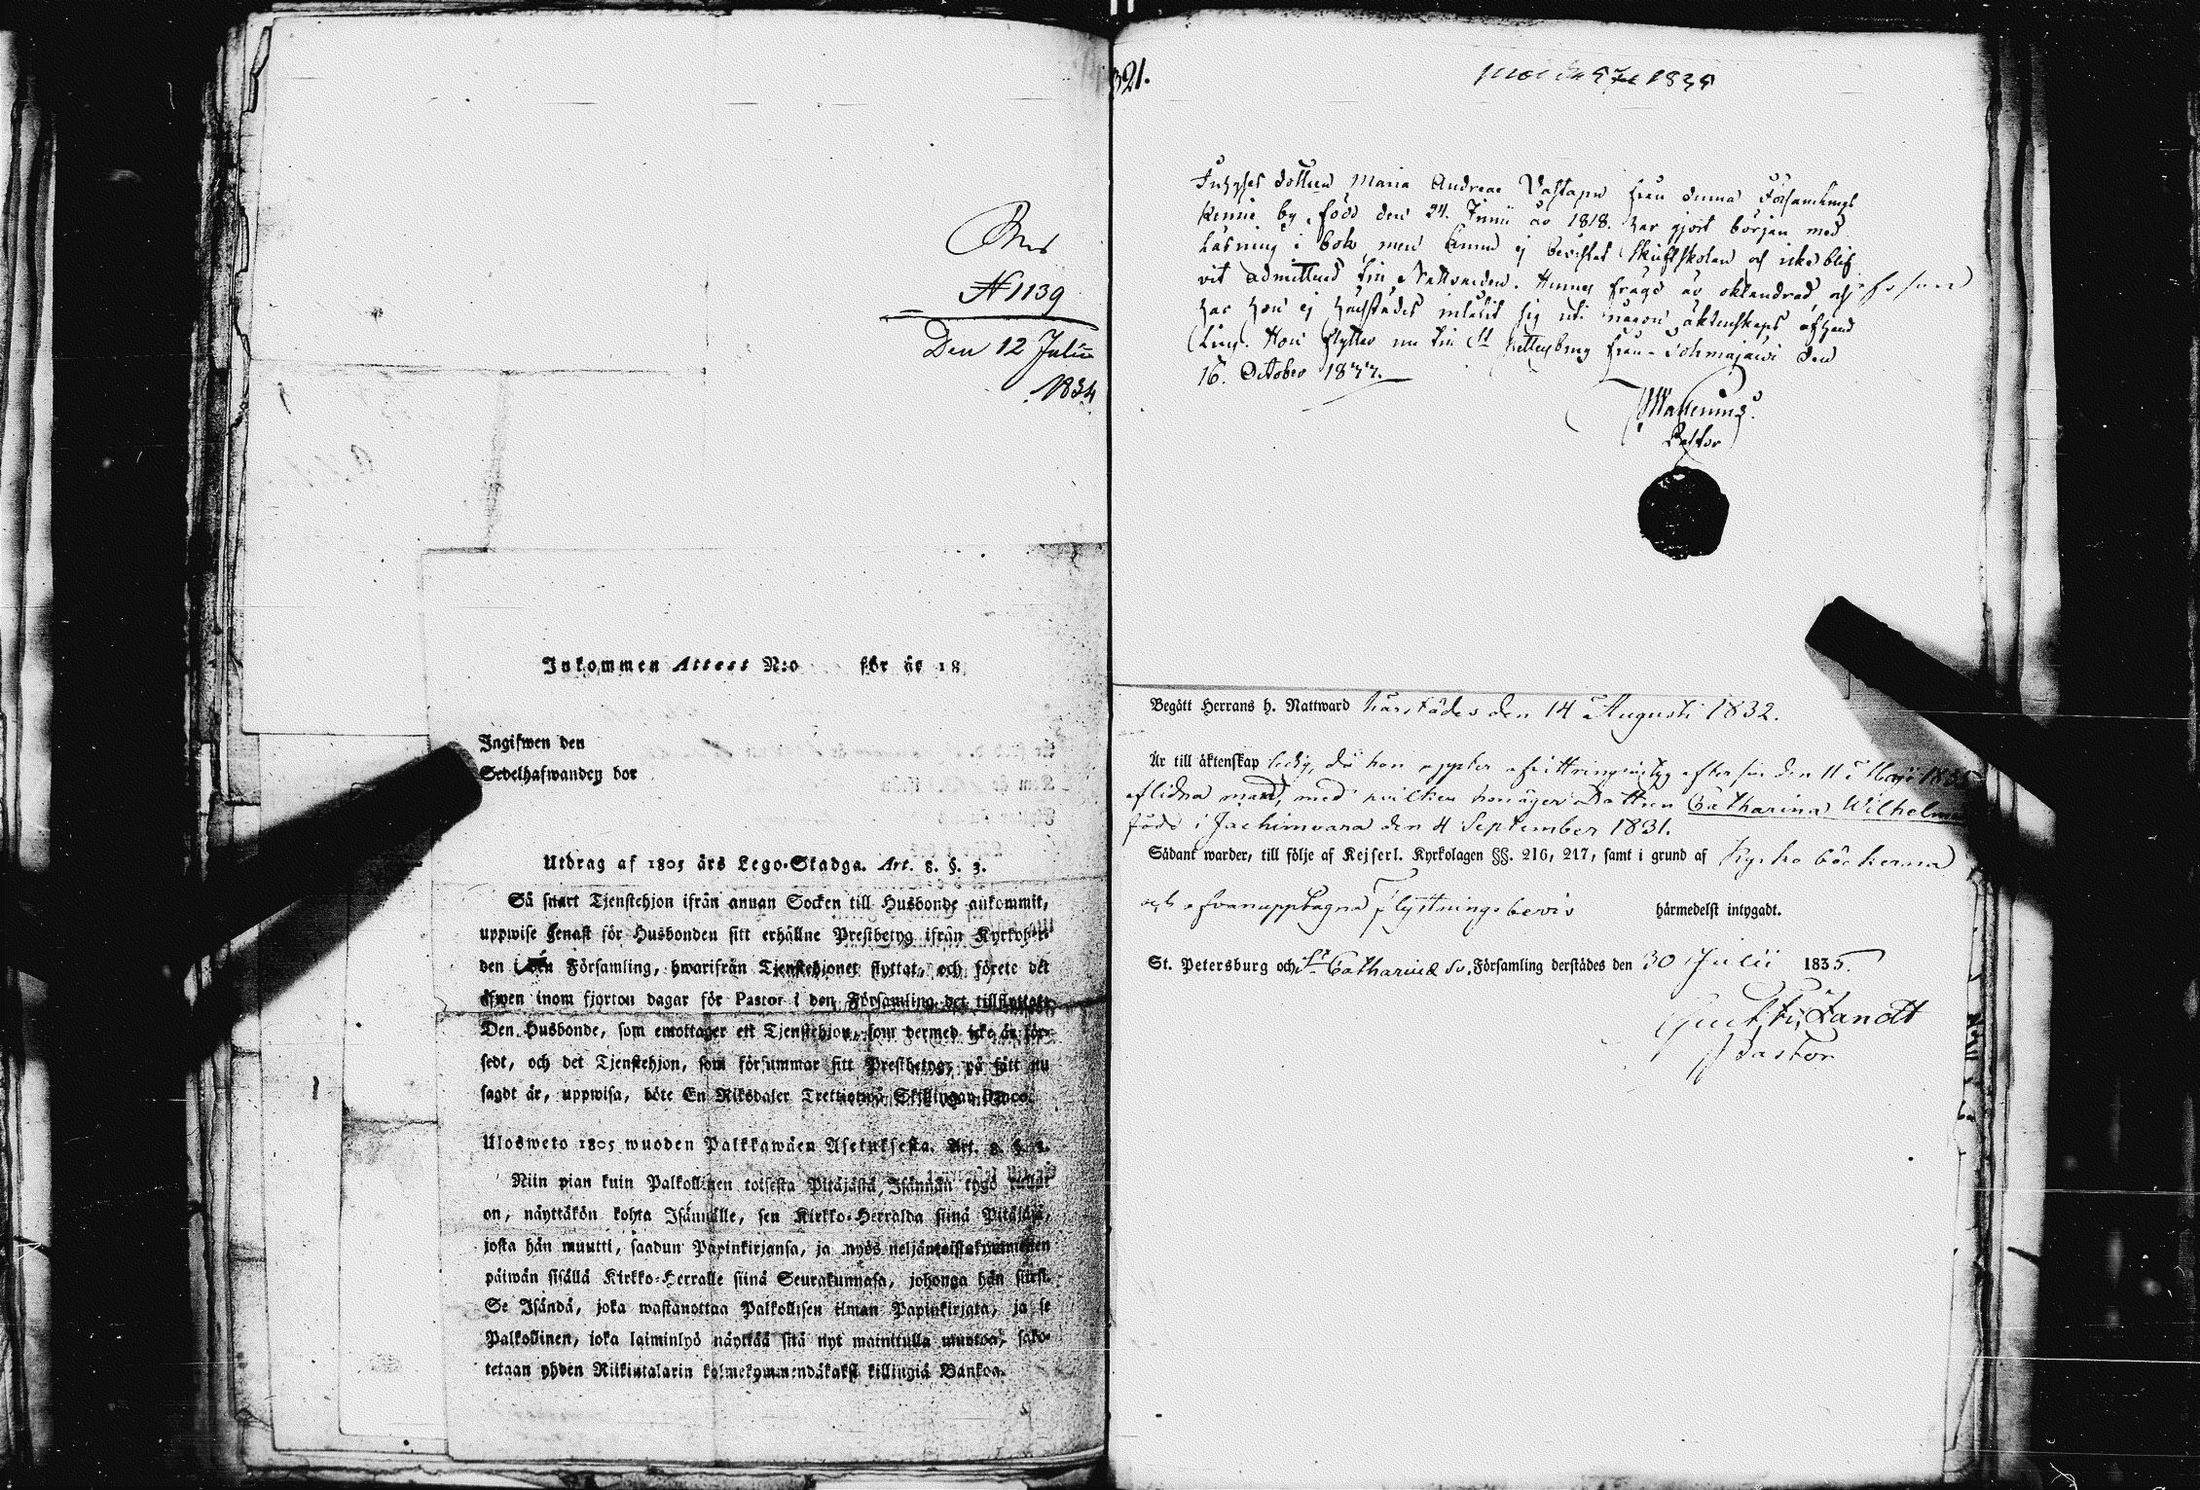 N 1139
Den 12 Julii
1834
Inkommen Attest N:o för år 18
Ingifwen den
Sedelhafwanden bor
Utdrag af 1805 års Lego-Stadga. Art. 8. §. 3.
Så snart Tjenstehjon ifrån annan Socken till Husbonde ankommit,
uppwise senast för Husbonden sitt erhållne Prestbetyg ifrån Kyrkoher-
den i den Församling, hwarifrån Tjenstehjonet flyttat, och förete det
äfwen inom fjorton dagar för Pastor i den Församling det tillflyttat.
Den Husbonde, som emottager ett Tjenstehjon, som dermed icke är för-
sedt, och det Tjenstehjon, som försummar sitt Prestbetyg, på sätt nu
sagdt är, uppwisa, böte En Riksdaler Trettiotwå Skillingar Banco.
Ulosweto 1805 wuoden Palkkawäen Asetuksesta. Art. 8. §. 3.
Niin pian kuin Palkollinen toisesta Pitäjästä, Isännän tygö tullut
on, näyttäkön kohta Isännälle, sen Kirkko-Herralda siinä Pitäjäsä,
josta hän muutti, saadun Papinkirjansa, ja myös neljäntoistakymmenen
päiwän sisällä Kirkko-Herralle siinä Seurakunnasa, johonga hän siirsi.
Se Isändä, joka wastanottaa Palkollisen ilman Papinkirjata, ja se
Palkollinen, joka laiminlyö näyttää sitä nyt mainitulla muotoa, sako-
tetaan yhden Riikintalarin kolmekymmendäkaksi killingiä Bankoa.
321.
1835
dottren Maria Andreae från denna Församlings
by, född den 24. Junii år 1818. har gjort början med
Läsning i bok men ej Skriftskolan och icke blif
vit admitterad till Nattvarden. Hennes frägd är oklandrad, och
har hon ej härstädes inlåtit sig uti någon äktenskaps afhand
ling. Hon flyttar nu till St Pettersburg från Tohmajärvi den
16. October 1833.
Pastor
Begått Herrans h. Nattward härstädes den 14 Augusti 1832.
Är till äktenskap ledig, då hon efter sin den 11 Maji 1835
aflidna man, med hvilken hon äger Dottren Catharina Wilhelmina
född i Jachimvara den 4 September 1831.
Sådant warder, till följe af Kejserl. Kyrkolagen §§. 216, 217, samt i grund af Kyrko böckerna
och ofvanupptagna flyttningsbevis härmedelst intygadt.
St. Petersburg och St Catharinæ Sv. Församling derstädes den 30 Julii 1835.
Pastor